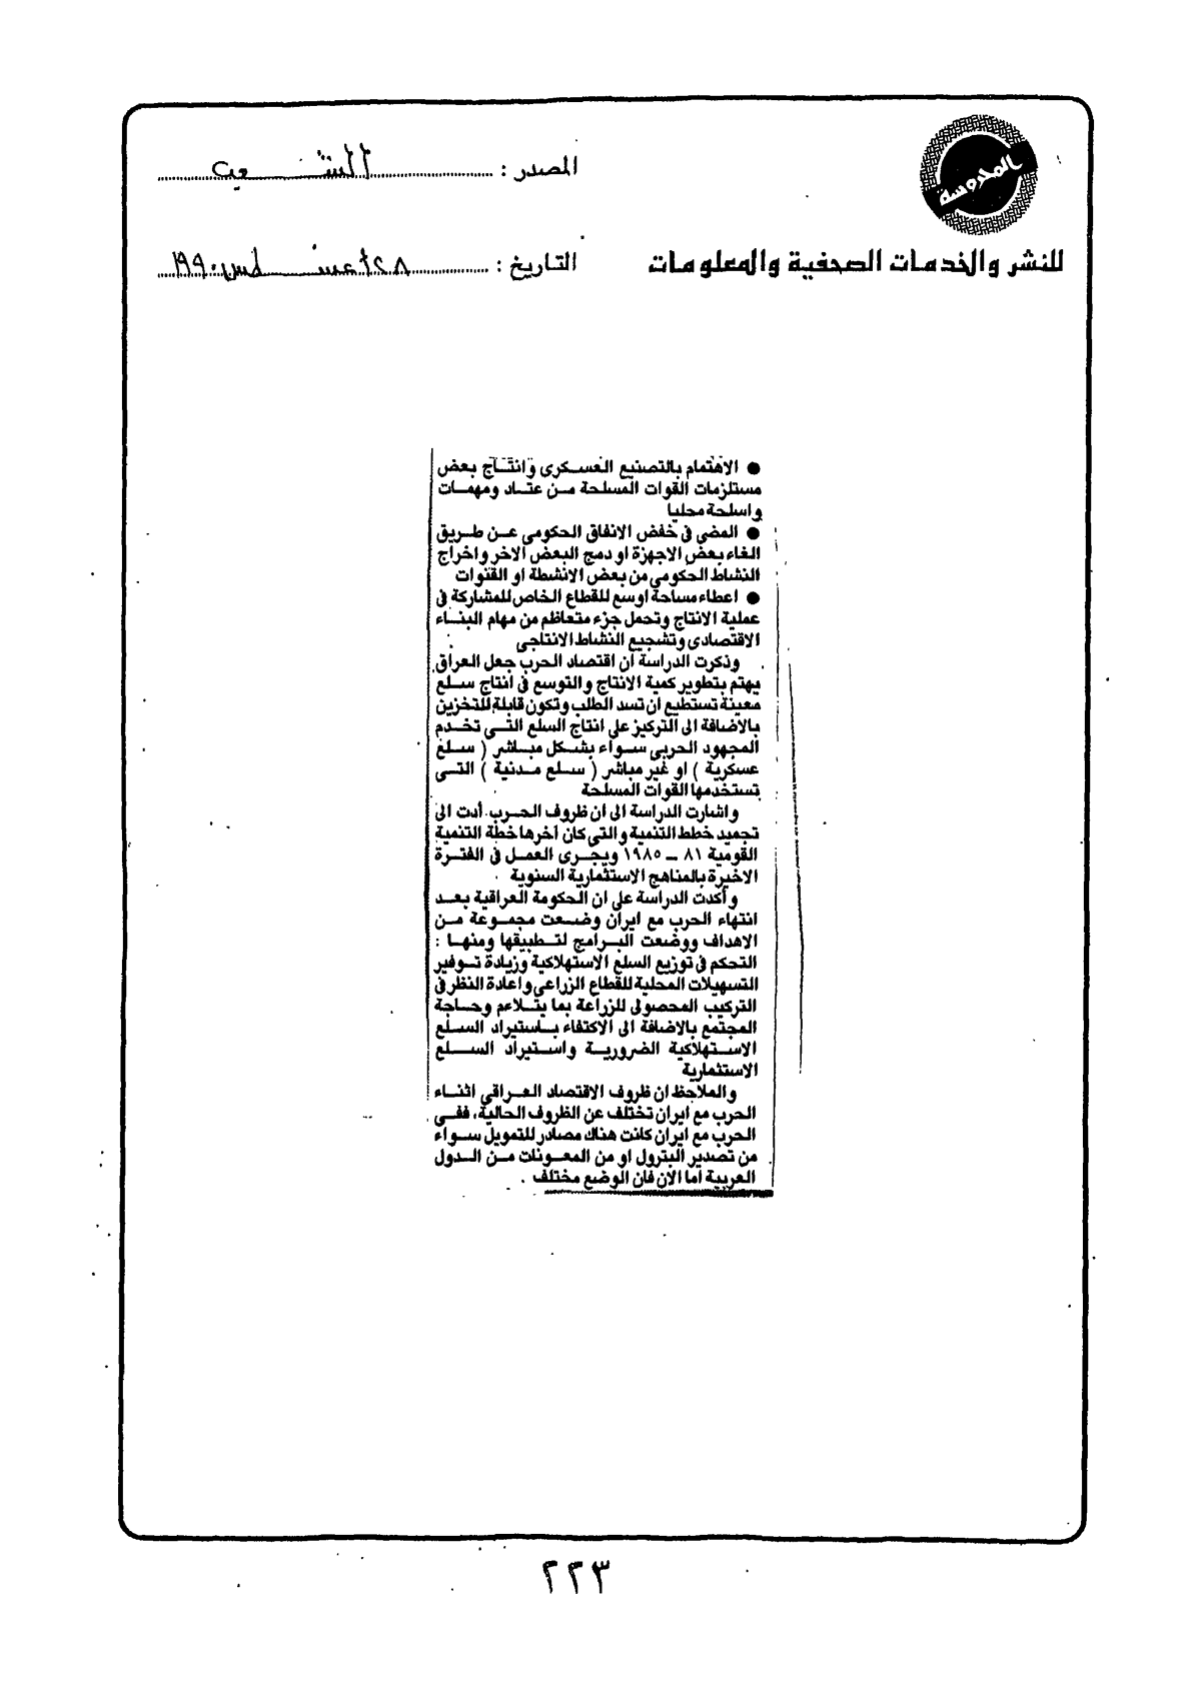 المحروسة
المصدر : الشعب
للنشر والخدمات الصحفية والمعلومات
التاريخ : ٢٨ أغسطس ١٩٩٠
● الاهتمام بالتصنيع العسكرى وانتاج بعض
مستلزمات القوات المسلحة من عتاد ومهمات
واسلحة محليا
● المضى فى خفض الانفاق الحكومى عن طريق
الغاء بعض الاجهزة او دمج البعض الاخر واخراج
النشاط الحكومى من بعض الانشطة او القنوات
● اعطاء مساحة اوسع للقطاع الخاص للمشاركة فى
عملية الانتاج وتحمل جزء متعاظم من مهام البناء
الاقتصادى وتشجيع النشاط الانتاجى
وذكرت الدراسة ان اقتصاد الحرب جعل العراق
يهتم بتطوير كمية الانتاج والتوسع فى انتاج سلع
معينة تستطيع ان تسد الطلب وتكون قابلة للتخزين
بالاضافة الى التركيز على انتاج السلع التى تخدم
المجهود الحربى سواء بشكل مباشر ( سلع
عسكرية ) او غير مباشر ( سلع مدنية ) التى
تستخدمها القوات المسلحة
واشارت الدراسة الى ان ظروف الحرب أدت الى
تجميد خطط التنمية والتى كان أخرها خطة التنمية
القومية ٨١ - ١٩٨٥ ويجرى العمل فى الفترة
الاخيرة بالمناهج الاستثمارية السنوية .
وأكدت الدراسة على ان الحكومة العراقية بعد
انتهاء الحرب مع ايران وضعت مجموعة من
الاهداف ووضعت البرامج لتطبيقها ومنها :
التحكم فى توزيع السلع الاستهلاكية وزيادة توفير
التسهيلات المحلية للقطاع الزراعى واعادة النظر فى
التركيب المحصولى للزراعة بما يتلاءم وحاجة
المجتمع بالاضافة الى الاكتفاء باستيراد السلع
الاستهلاكية الضرورية واستيراد السلع
الاستثمارية
والملاحظ ان ظروف الاقتصاد العراقي اثناء
الحرب مع ايران تختلف عن الظروف الحالية، ففى
الحرب مع ايران كانت هناك مصادر للتمويل سواء
من تصدير البترول او من المعونات من الدول
العربية اما الان فان الوضع مختلف .
٢٢٣